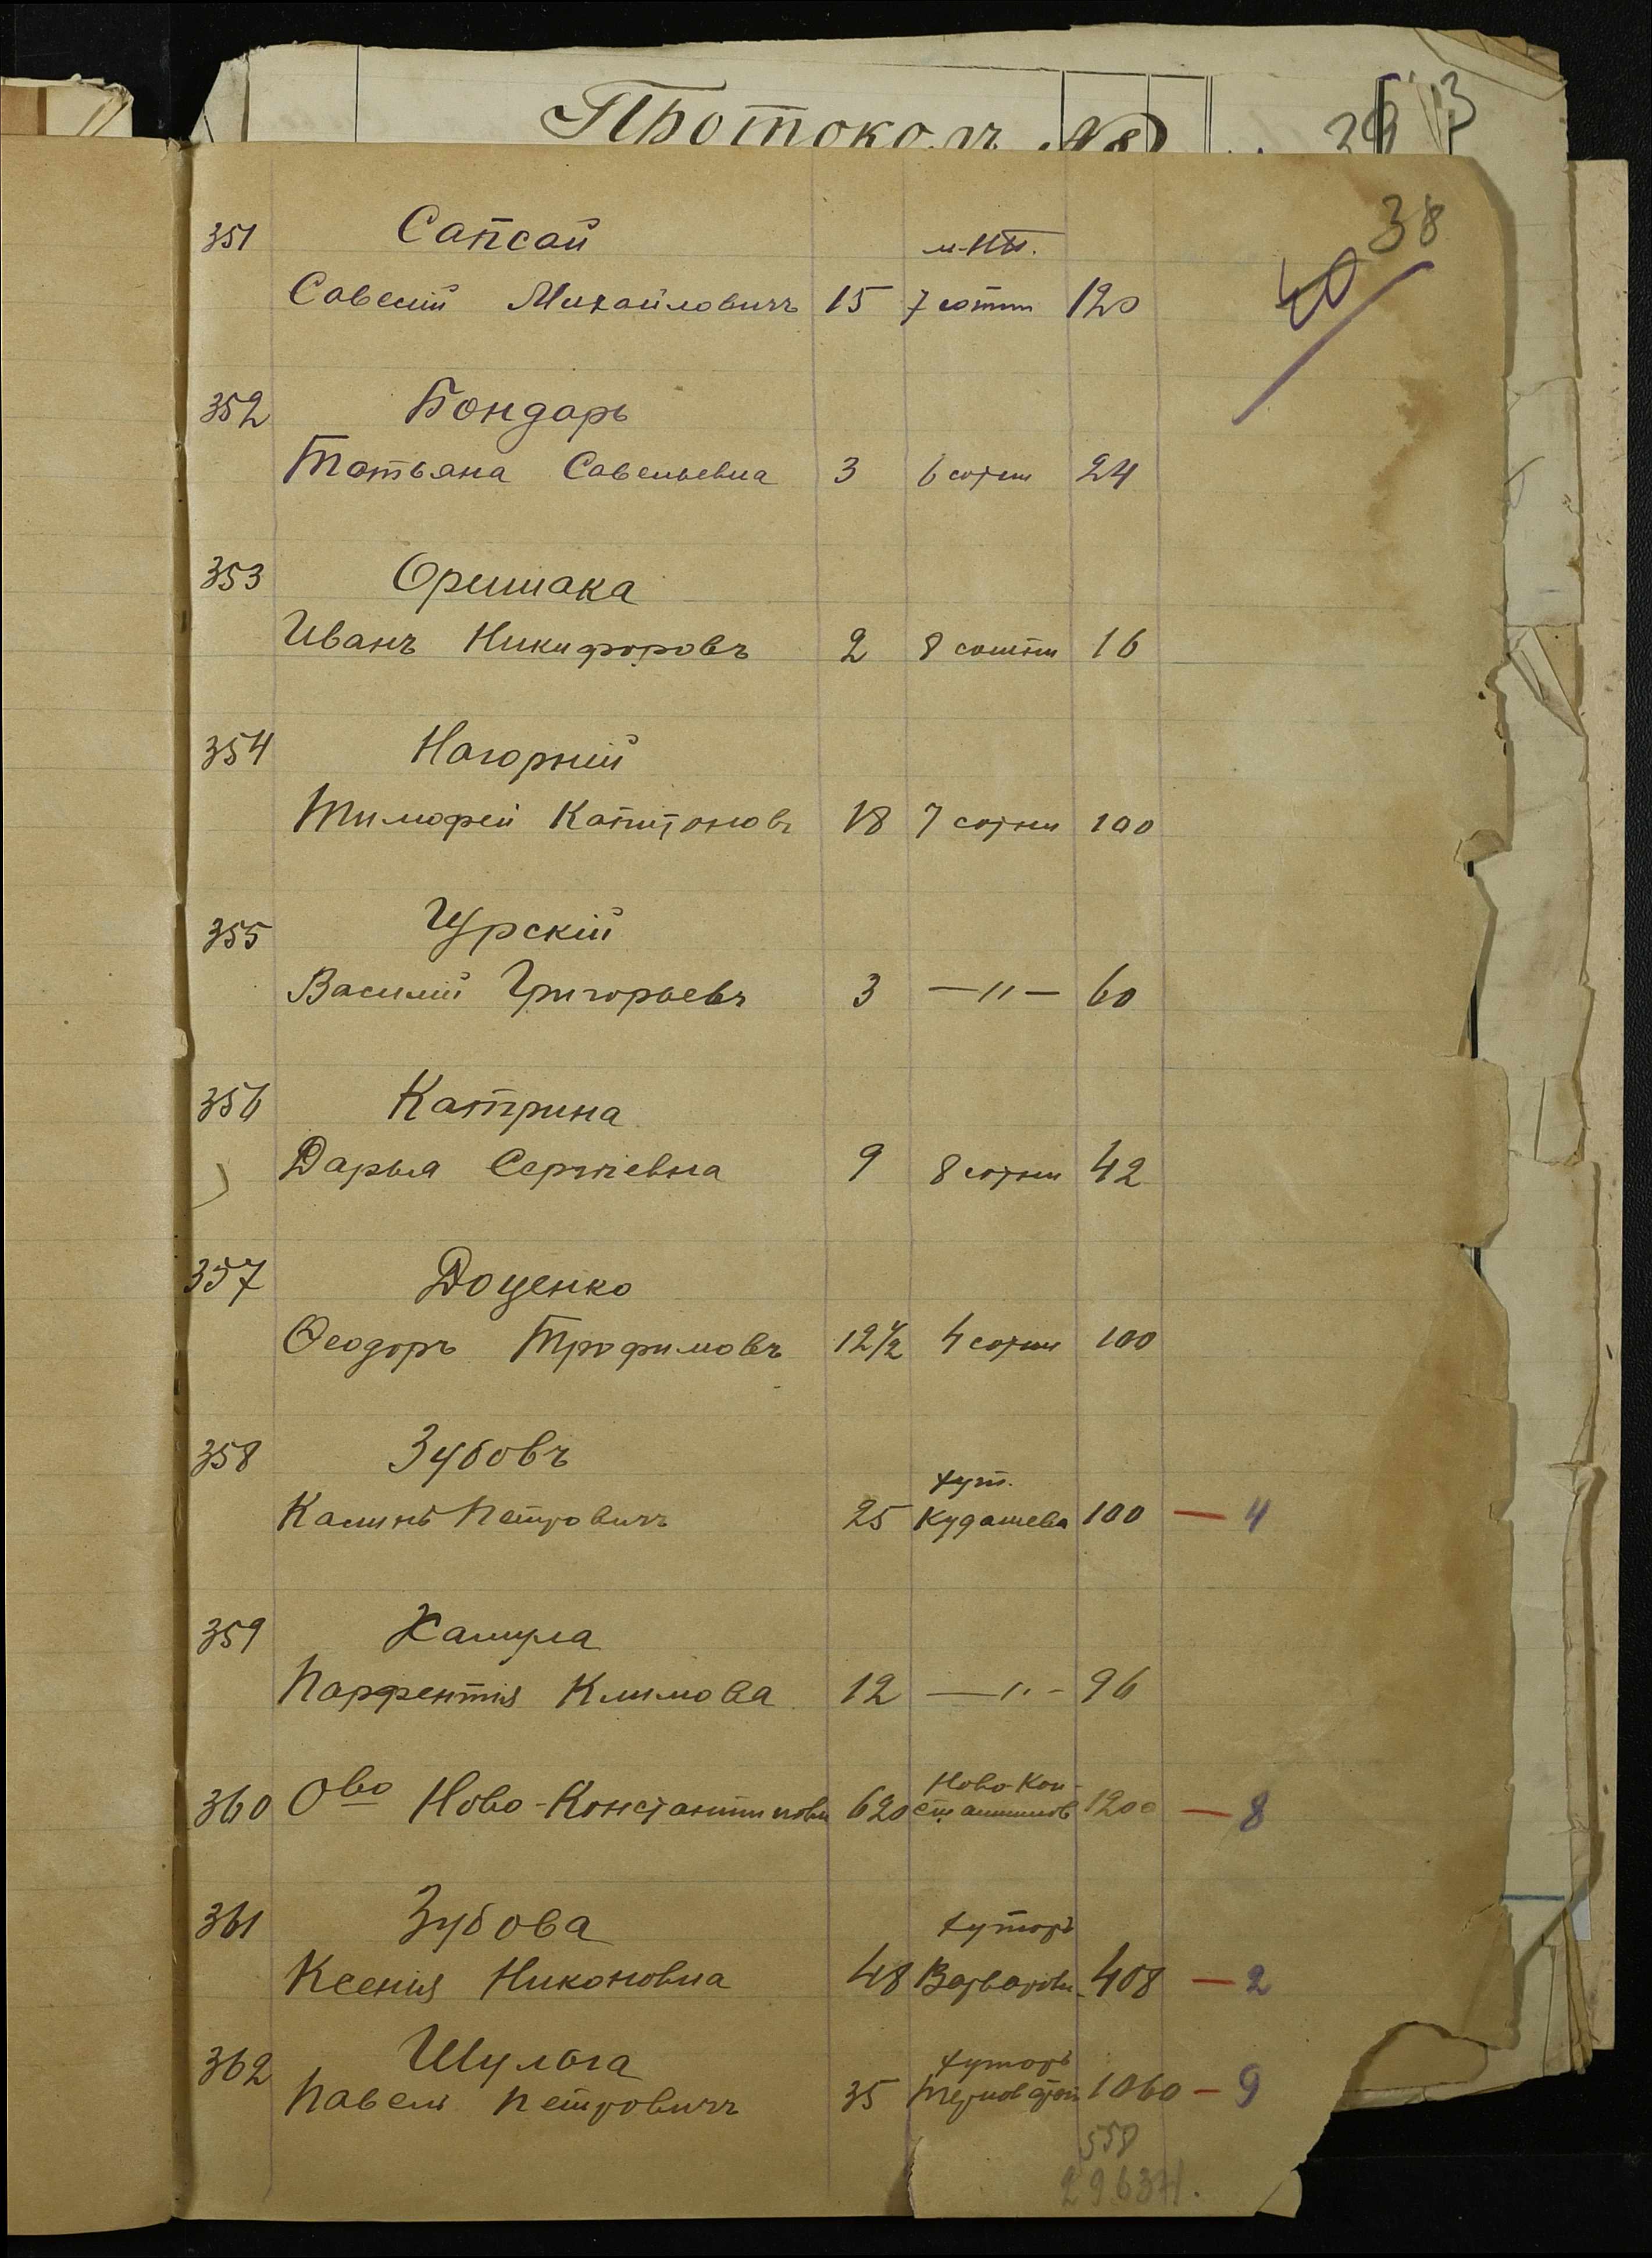 Протоколъ №
38
40
351 Сапсай м. НТ.
Савелій Михайловичъ 15 7 сотни 120
352 Бондарь
Татьяна Савельевна 3 6 сотни 24
353 Оришака
Иванъ Никифоровъ 2 8 сотни 16
354 Нагорній
Тимофей Капитоновъ 18 7 сотни 100
355 Цурскій
Василій Григорьевъ 3 —〃— 60
356 Катрина
Дарья Сергіевна 9 8 сотни 42
357 Доценко
Ѳеодоръ Трофимовъ 12½ 4 сотни 100
358 Зубовъ хут.
Калинъ Петровичъ 25 Кудашева 100 — 4
359 Хамула
Парфентія Климова 12 —〃— 96
Ново-Кон-
360 Oво Ново-Константиновк 620 стантинов 1200 — 8
361 Зубова хуторъ
Ксенія Никоновна 48 Варваровк. 408 — 2
362 Шулога хуторъ
Павелъ Петровичъ 35 1060 — 9
558
29637.